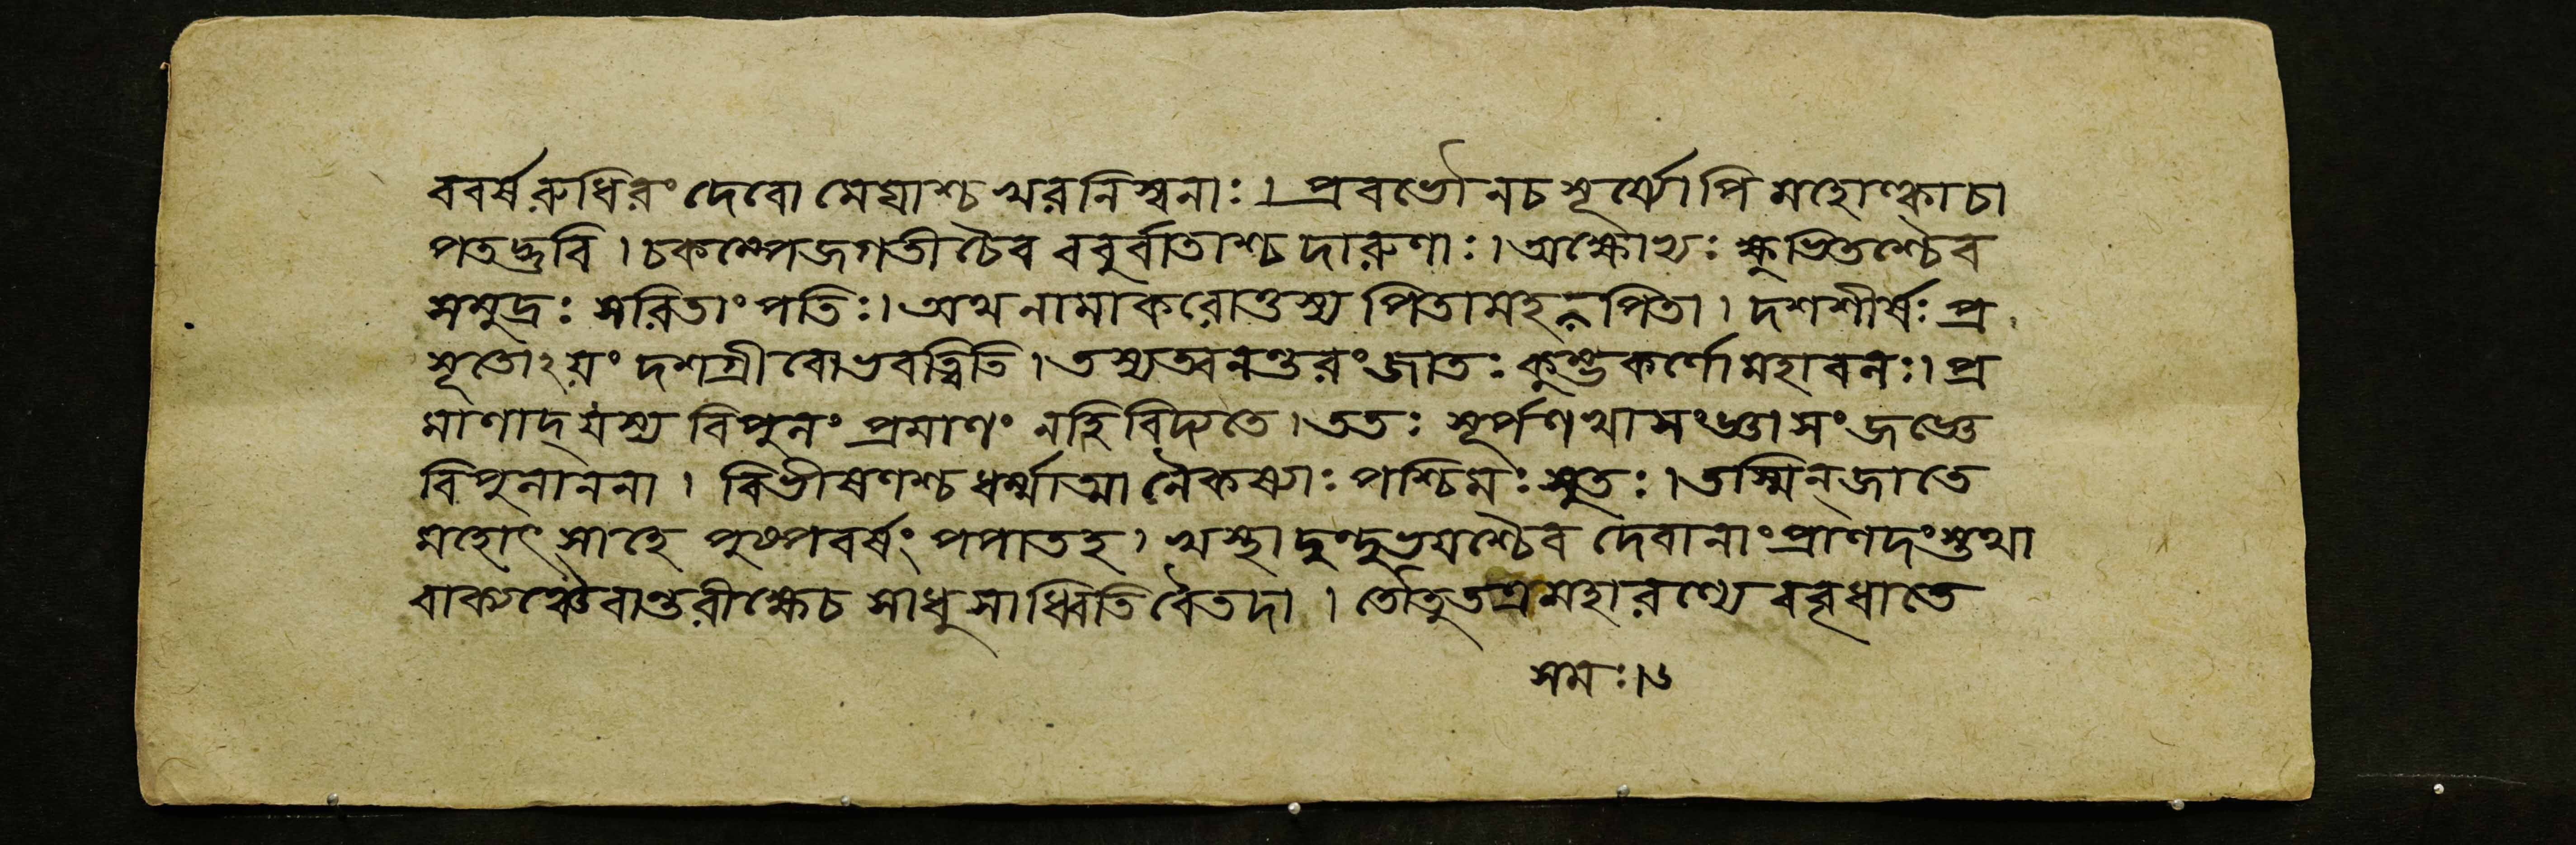 ববর্ষরুধিরং দেবো মেঘাশ্চ খরনিস্বনাঃ। প্রবভৌ নচ সূর্য্যোপি মহোল্কাচা
পতদ্ভুবি। চকম্পে জগতী চৈব ববুর্বাতাশ্চ দারুণাঃ। অক্ষোভ্যঃ ক্ষুভিতশ্চৈব
সমুদ্রঃ সরিতাং পতিঃ। অথ নামাকরোত্তস্য পিতামহসমঃ পিতা। দশশীর্ষঃ প্র
সূতোঽয়ং দশগ্রীবো ভবত্বিতি। তস্যত্বনন্তরং জাতঃ কুম্ভকর্ণো মহাবলঃ। প্র
মাণাদ্ যস্য বিপুলং প্রমাণং নহি বিদ্যতে। ততঃ সূর্পণখা সংজ্ঞা সংজজ্ঞে
বিপুলাননা। বিভীষণশ্চ ধর্ম্মাত্মা নৈকষ্যঃ পশ্চিমঃ সুতঃ। তস্মিন্ জাতে
মহোৎসাহে পুষ্পবর্ষং পপাতহ। খস্থা দুন্দুভয়শ্চৈব দেবানাং প্রাণদংস্তথা
বাক্যঞ্চৈবান্তরীক্ষেচ সাধুসাধ্বিতি বৈতদা। তৌতুতত্র মহারণ্যে ববৃধাতে
সমঃ।৬